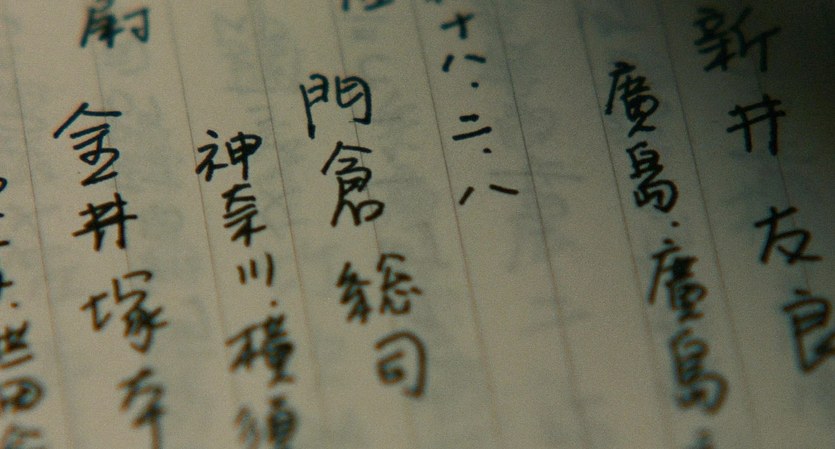 新井友良
廣島・廣島
十八・二・八
門倉総司
神奈川・横須
金井塚